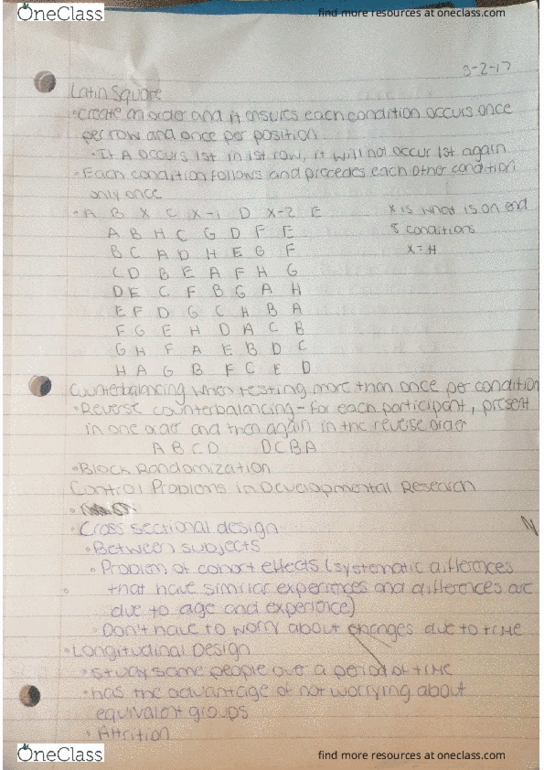 OneClass
find more resources at oneclass.com
3-2-17
Latin Square
• Create an order and it ensures each condition occurs once
per row and once per position
• If A occurs 1st in 1st row, it will not occur 1st again
• Each condition follows and precedes each other condition
only once
• A B X C X-1 D X-2 E
X is what is on end
A B H C G D F E
8 conditions
B C A D H E G F
X=H
C D B E A F H G
D E C F B G A H
E F D G C H B A
F G E H D A C B
G H F A E B D C
H A G B F C E D
Counterbalancing when testing more than once per condition
• Reverse counterbalancing - for each participant, present
in one order and then again in the reverse order
A B C D D C B A
• Block Randomization
Control Problems in Developmental Research
• Cross sectional design
• Between subjects
• Problem of cohort effects (systematic differences
that have similar experiences and differences are
due to age and experience)
• Don't have to worry about changes due to time
• Longitudinal Design
• Study same people over a period of time
• has the advantage of not worrying about
equivalent groups
• Attrition
OneClass
find more resources at oneclass.com